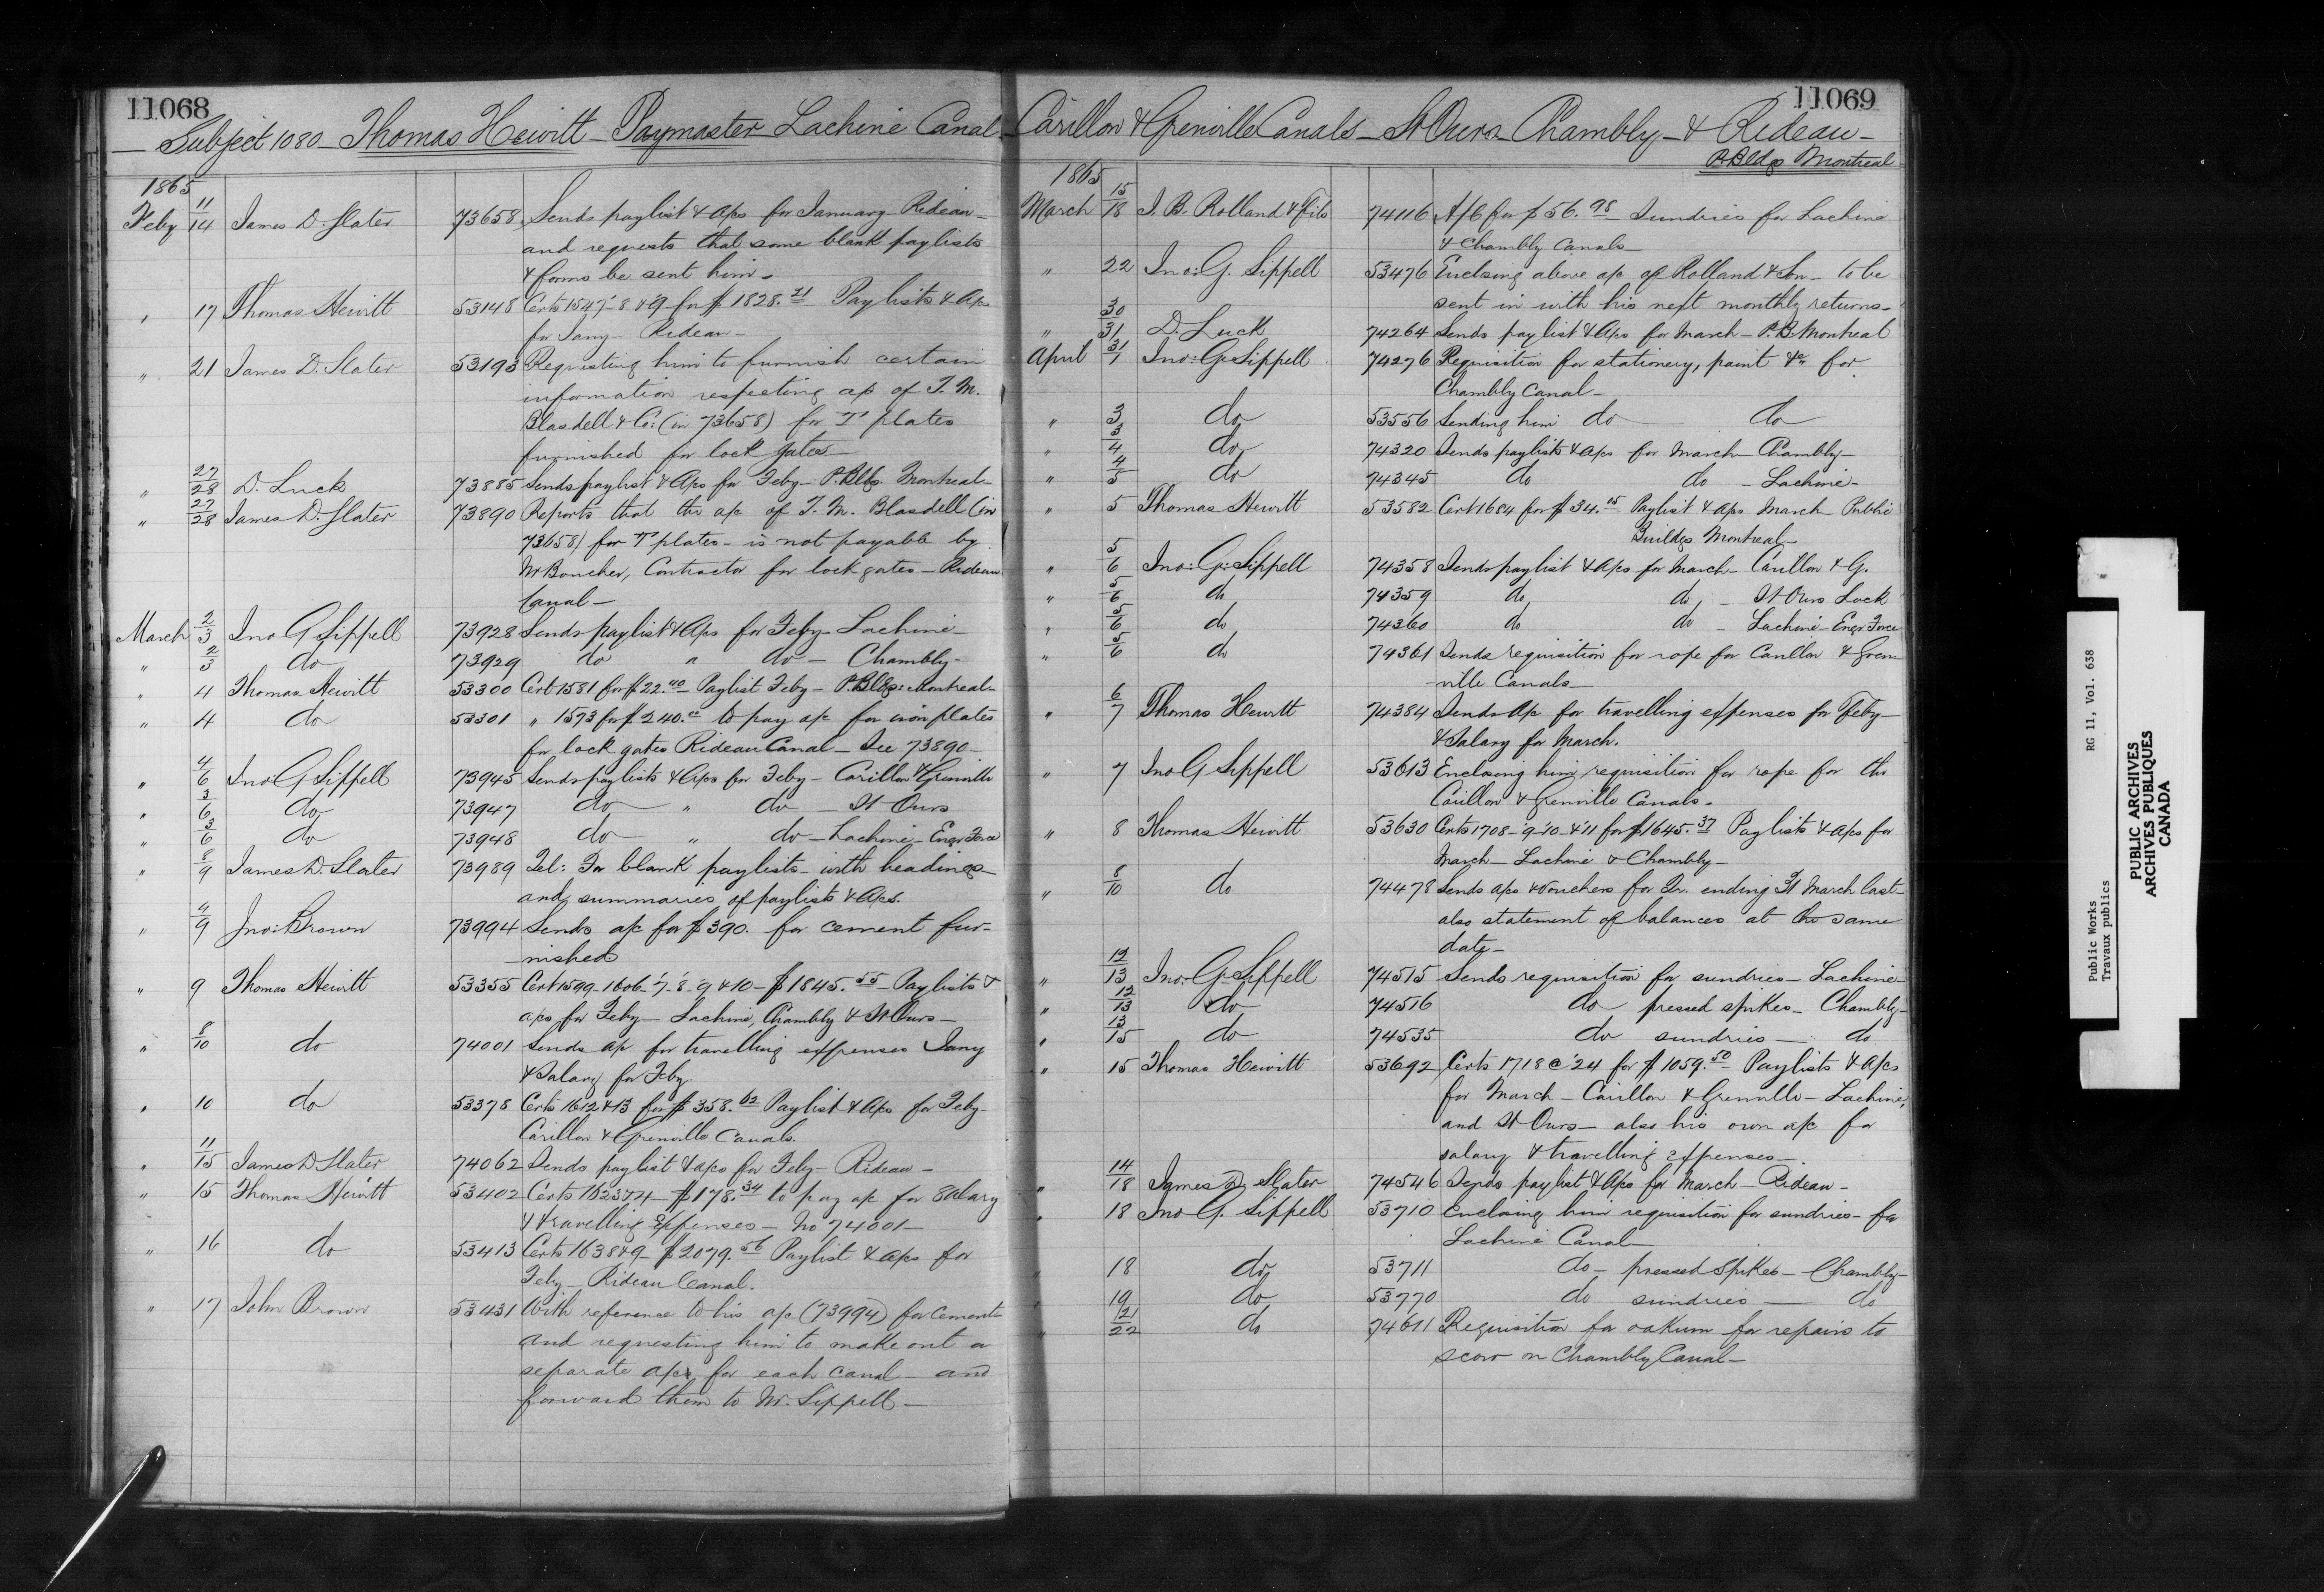 11068
Subject 1080 - Thomas Hewitt - Paymaster Lachine Canal
1865
Feby 11/14 James D. Slater 73658 Sends paylist & a/cs for January - Rideau -
and requests that some blank paylists
& forms be sent him -
" 17 Thomas Hewitt 53148 Certs 1547-8 & 9 for $1828.21 Paylists & a/cs
for Jany - Rideau -
" 21 James D. Slater 53193 Requesting him to furnish certain
information respecting a/c of T. M.
Blasdell & Co: (in 73658) for T plates
furnished for lock gates -
" 27/28 D. Luck 73885 Sends paylist & a/cs for Feby - P. Bldgs. Montreal -
" 27/28 James D. Slater 73890 Reports that the a/c of T. M. Blasdell (in
73658) for T plates - is not payable by
Mr Boucher, Contractor for lock gates - Rideau
Canal -
March 2/3 Jno G Sippell 73928 Sends paylist & a/cs for Feby - Lachine -
" 2/3 do 73929 do " do - Chambly -
" 4 Thomas Hewitt 53300 Cert 1581 for $22.40 Paylist Feby - P. Bldgs: Montreal -
" 4 do 53301 " 1573 for $240.00 to pay a/c for iron plates
for lock gates Rideau Canal - See 73890 -
" 4/6 Jno G Sippell 73945 Sends paylists & a/cs for Feby - Carillon & Grenville
" 3/6 do 73947 do " do - St Ours
" 3/6 do 73948 do " do - Lachine - Engr Force
" 8/9 James D. Slater 73989 Tel: For blank paylists - with headings -
and summaries of paylists & a/cs.
" 4/9 Jno: Brown 73994 Sends a/c for $390. for cement fur-
-nished
" 9 Thomas Hewitt 53355 Cert 1599 - 1606 - '7 - 8 - 9 & 10 - $1845.55 - Paylists &
a/cs for Feby - Lachine, Chambly & St Ours -
" 8/10 do 74001 Sends a/c for travelling expenses Jany
& Salary for Feby.
" 10 do 53378 Certs 1612 & 13 for $358.62 Paylist & a/cs for Feby -
Carillon & Grenville Canals.
" 11/15 James D Slater 74062 Sends paylist & a/cs for Feby - Rideau -
" 15 Thomas Hewitt 53402 Certs 1623 & 4 - $178.34 to pay a/c for Salary
& travelling Expenses - No 74001 -
" 16 do 53413 Certs 1638 & 9 - $2079.56 Paylist & a/cs for
Feby - Rideau Canal.
" 17 John Brown 53431 With reference to his a/c (73994) for cement
and requesting him to make out a
separate a/c for each canal - and
forward them to Mr. Sippell -
11069
Carillon & Grenville Canals - St Ours - Chambly - & Rideau -
P. Bldgs Montreal
1865
March 15/18 J. B. Rolland & Fils 74116 A/C for $56.98 Sundries for Lachine
& Chambly Canals -
" 22 Jno: G. Sippell 53476 Enclosing above a/c of Rolland & Son - to be
sent in with his next monthly returns -
" 30/31 D. Luck 74264 Sends paylist & a/cs for March - P. B. Montreal
April 31/1 Jno: G. Sippell 74276 Requisition for stationery, paint &c for
Chambly Canal -
" 3 do 53556 Sending him do do
" 3/4 do 74320 Sends paylists & a/cs for March - Chambly -
" 4/5 do 74345 do do - Lachine -
" 5 Thomas Hewitt 53582 Cert 1684 for $34.05 Paylist & a/cs March - Public
Buildgs Montreal -
" 5/6 Jno: G: Sippell 74358 Sends paylist & a/cs for March - Carillon & G.
" 5/6 do 74359 do do - St Ours Lock
" 5/6 do 74360 do do - Lachine - Engr Force
" 5/6 do 74361 Sends requisition for rope for Carillon & Gren
-ville Canals -
" 6/7 Thomas Hewitt 74384 Sends a/c for travelling expenses for Feby -
& Salary for March.
" 7 Jno G Sippell 53613 Enclosing him requisition for rope for the
Carillon & Grenville Canals -
" 8 Thomas Hewitt 53630 Certs 1708 - '9 - '10 - & '11 for $1645.37 Paylists & a/cs for
March - Lachine & Chambly -
" 8/10 do 74478 Sends a/cs & vouchers for Qr. ending 31 March last -
also statement of balances at the same
date -
" 12/13 Jno: G. Sippell 74515 Sends requisition for sundries - Lachine
" 12/13 do 74516 do pressed spikes - Chambly -
" 13/15 do 74535 do sundries - do
" 15 Thomas Hewitt 53692 Certs 1718 @ '24 for $1059.50 Paylists & a/cs
for March - Carillon & Grenville - Lachine,
and St Ours - also his own a/c for
salary & travelling expenses -
" 14/18 James D Slater 74546 Sends paylist & a/cs for March - Rideau -
" 18 Jno G. Sippell 53710 Enclosing him requisition for sundries - for
Lachine Canal -
" 18 do 53711 do - pressed Spikes - Chambly -
" 19 do 53770 do sundries - do
" 21/22 do 74611 Requisition for oakum for repairs to
scow on Chambly Canal -
Public Works RG 11, Vol. 638
Travaux publics
PUBLIC ARCHIVES
ARCHIVES PUBLIQUES
CANADA